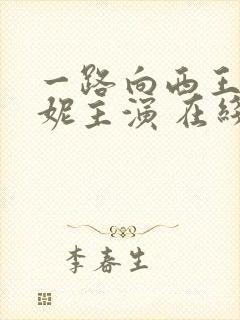 一路向西王
妮主演 在线
李春生